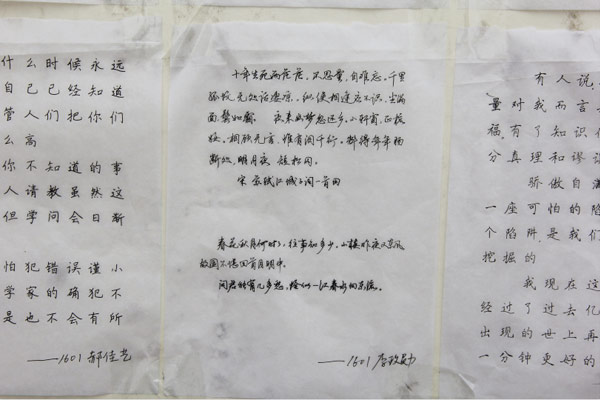 什么时候永远
自己已经知道
管人们把你们
么高
你不知道的事
人请教虽然这
但学问会日渐
怕犯错误谨小
学家的确犯不
是也不会有所
——1601 郝佳艺
十年生死两茫茫,不思量,自难忘,千里
孤坟无处话凄凉,纵使相逢应不识,尘满
面鬓如霜 夜来幽梦忽还乡,小轩窗,正梳
妆,相顾无言,惟有泪千行,料得年年肠
断处,明月夜 短松冈。
宋 苏轼江城子词一首
春花秋月何时了,往事知多少,小楼昨夜又东风
故国不堪回首月明中
问君能有几多愁,恰似一江春水向东流。
——1601 李政勋
有人说,
量对我而言
福。有了知识
分真理和谬
骄傲自
一座可怕的陷
个陷阱是我们
挖掘的
我现在这
经过了过去亿
出现的世上再
一分钟更好的